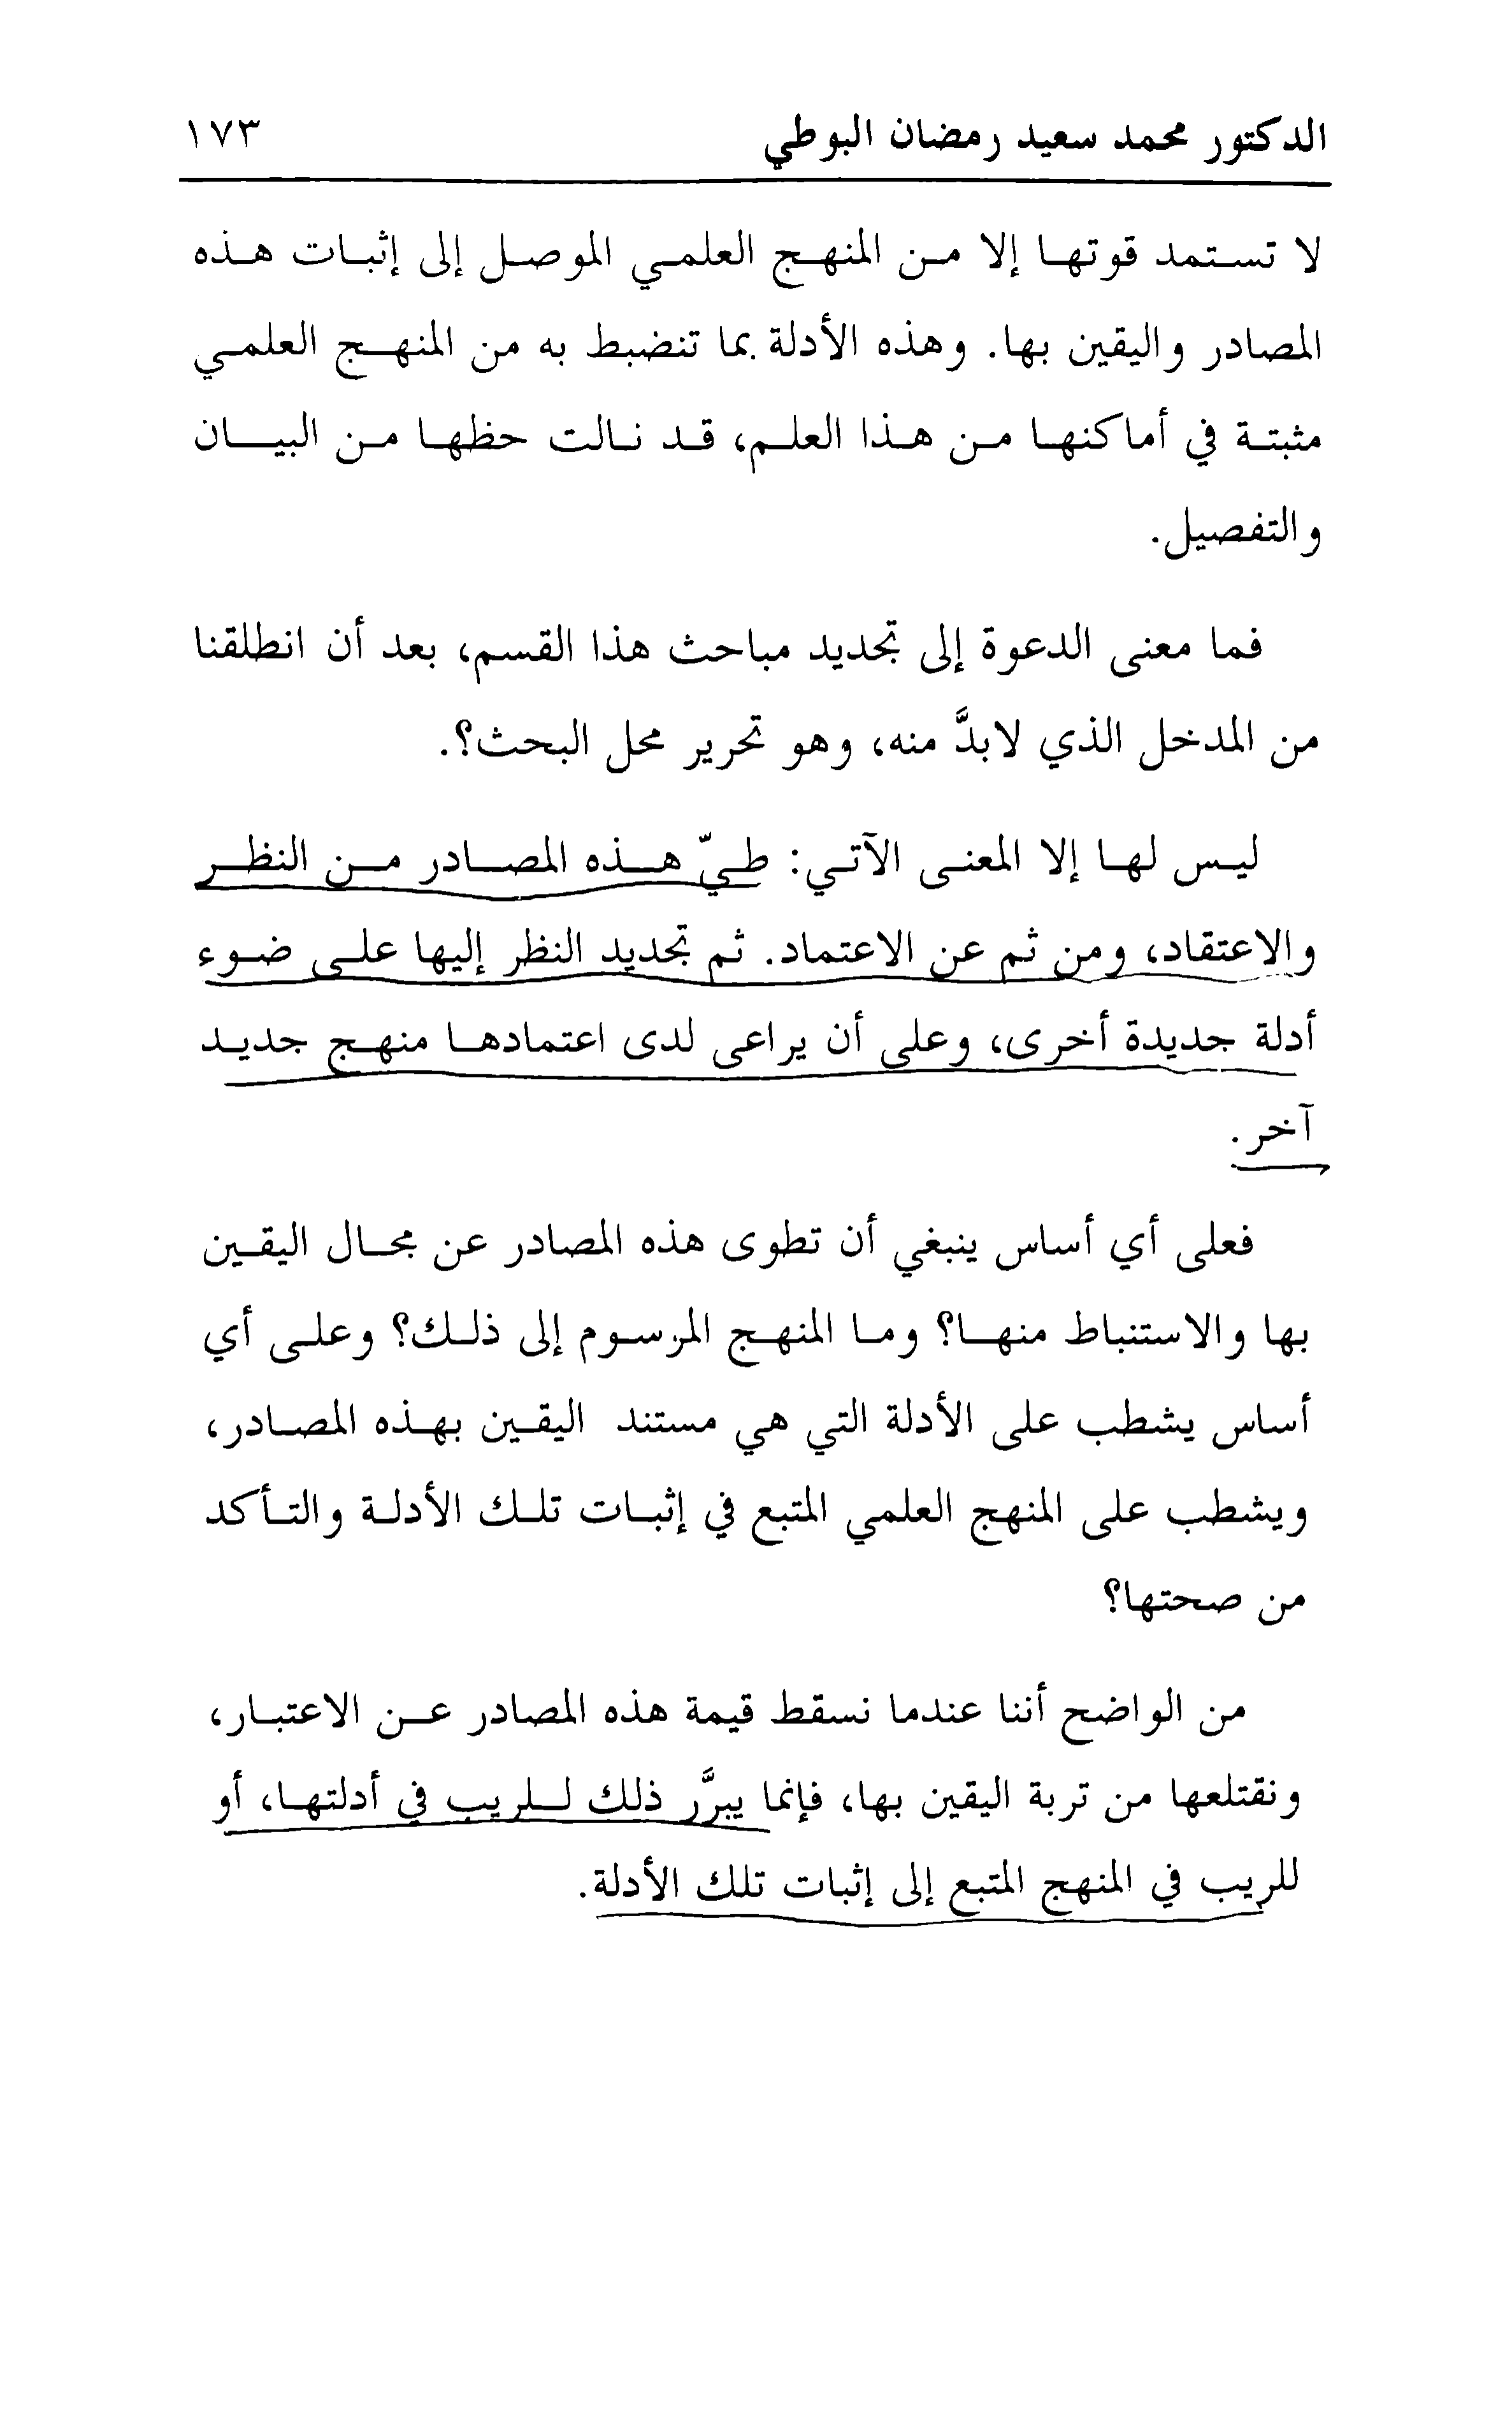 الدكتور محمد سعيد رمضان البوطي ١٧٣
لا تستمد قوتها إلا من المنهج العلمي الموصل إلى إثبات هذه
المصادر واليقين بها. وهذه الأدلة بما تنضبط به من المنهج العلمي
مثبتة في أماكنها من هذا العلم، قد نالت حظها من البيان
والتفصيل.
فما معنى الدعوة إلى تجديد مباحث هذا القسم، بعد أن انطلقنا
من المدخل الذي لابدَّ منه، وهو تحرير محل البحث؟.
ليس لها إلا المعنى الآتي: طيّ هذه المصادر من النظر
والاعتقاد، ومن ثم عن الاعتماد. ثم تجديد النظر إليها على ضوء
أدلة جديدة أخرى، وعلى أن يراعى لدى اعتمادها منهج جديد
آخر.
فعلى أي أساس ينبغي أن تطوى هذه المصادر عن مجال اليقين
بها والاستنباط منها؟ وما المنهج المرسوم إلى ذلك؟ وعلى أي
أساس يشطب على الأدلة التي هي مستند اليقين بهذه المصادر،
ويشطب على المنهج العلمي المتبع في إثبات تلك الأدلة والتأكد
من صحتها؟
من الواضح أننا عندما نسقط قيمة هذه المصادر عن الاعتبار،
ونقتلعها من تربة اليقين بها، فإنما يبرَّر ذلك للريب في أدلتها، أو
للريب في المنهج المتبع إلى إثبات تلك الأدلة.